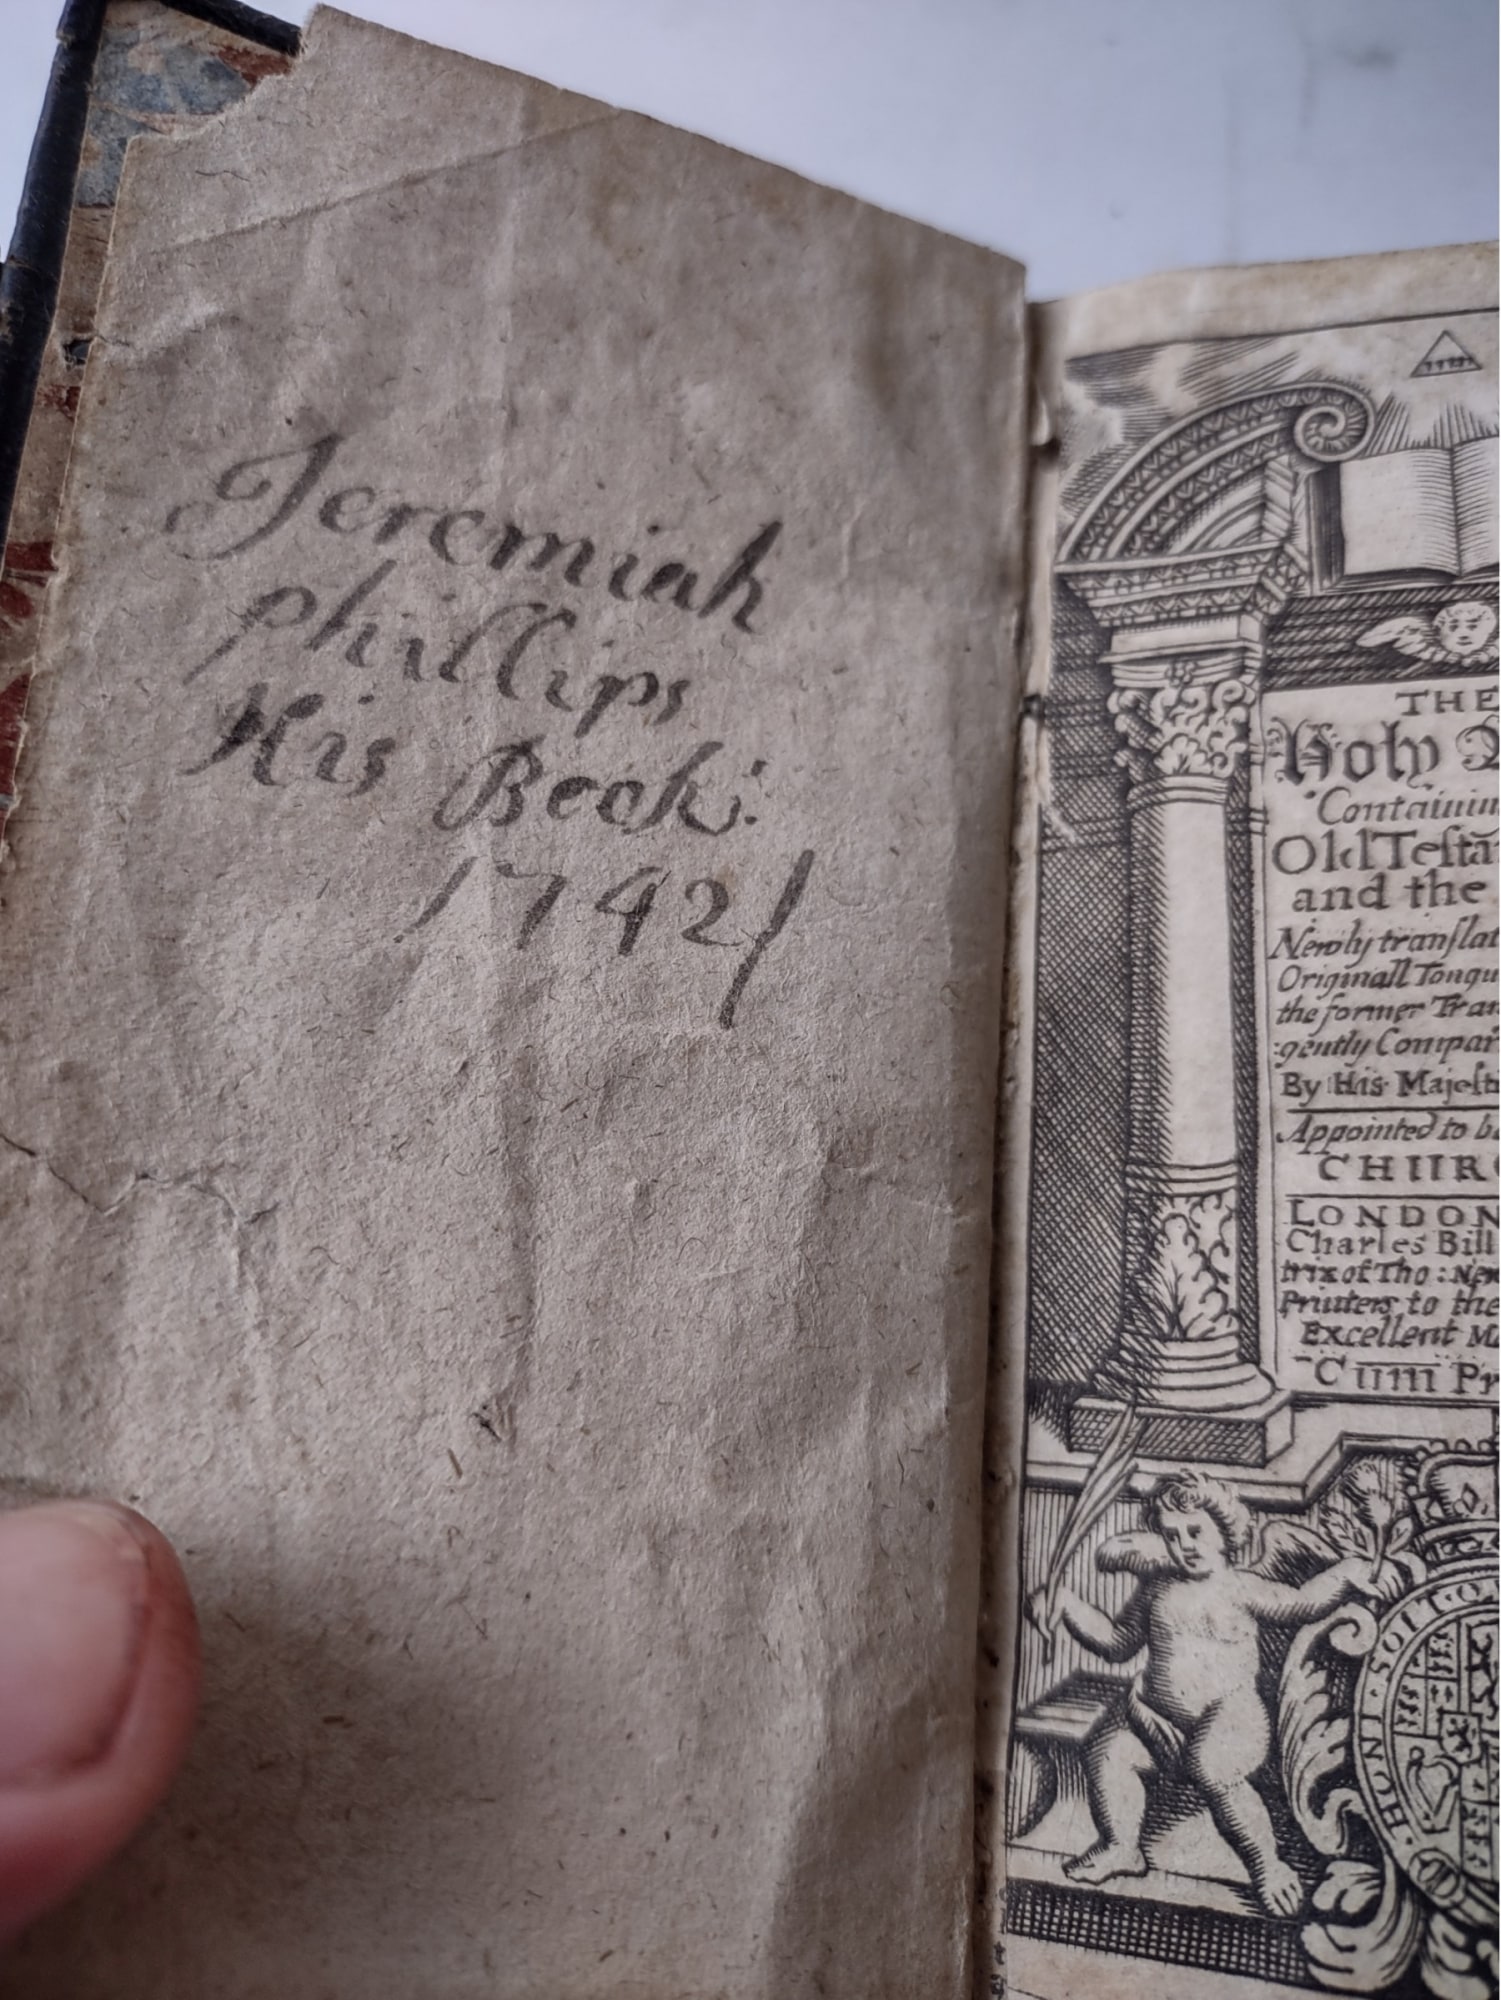 Jeremiah
phillips
His Book:
1742/
THE
Holy
Old Testa
and the
Newly tranſlat
Originall Tongu
the former Tran
gently Compar
By His Majeſt
Appointed to b
LONDON
Charles Bill
trix of Tho: New
Printers to the
Excellent Ma
HONI·SOIT·Q